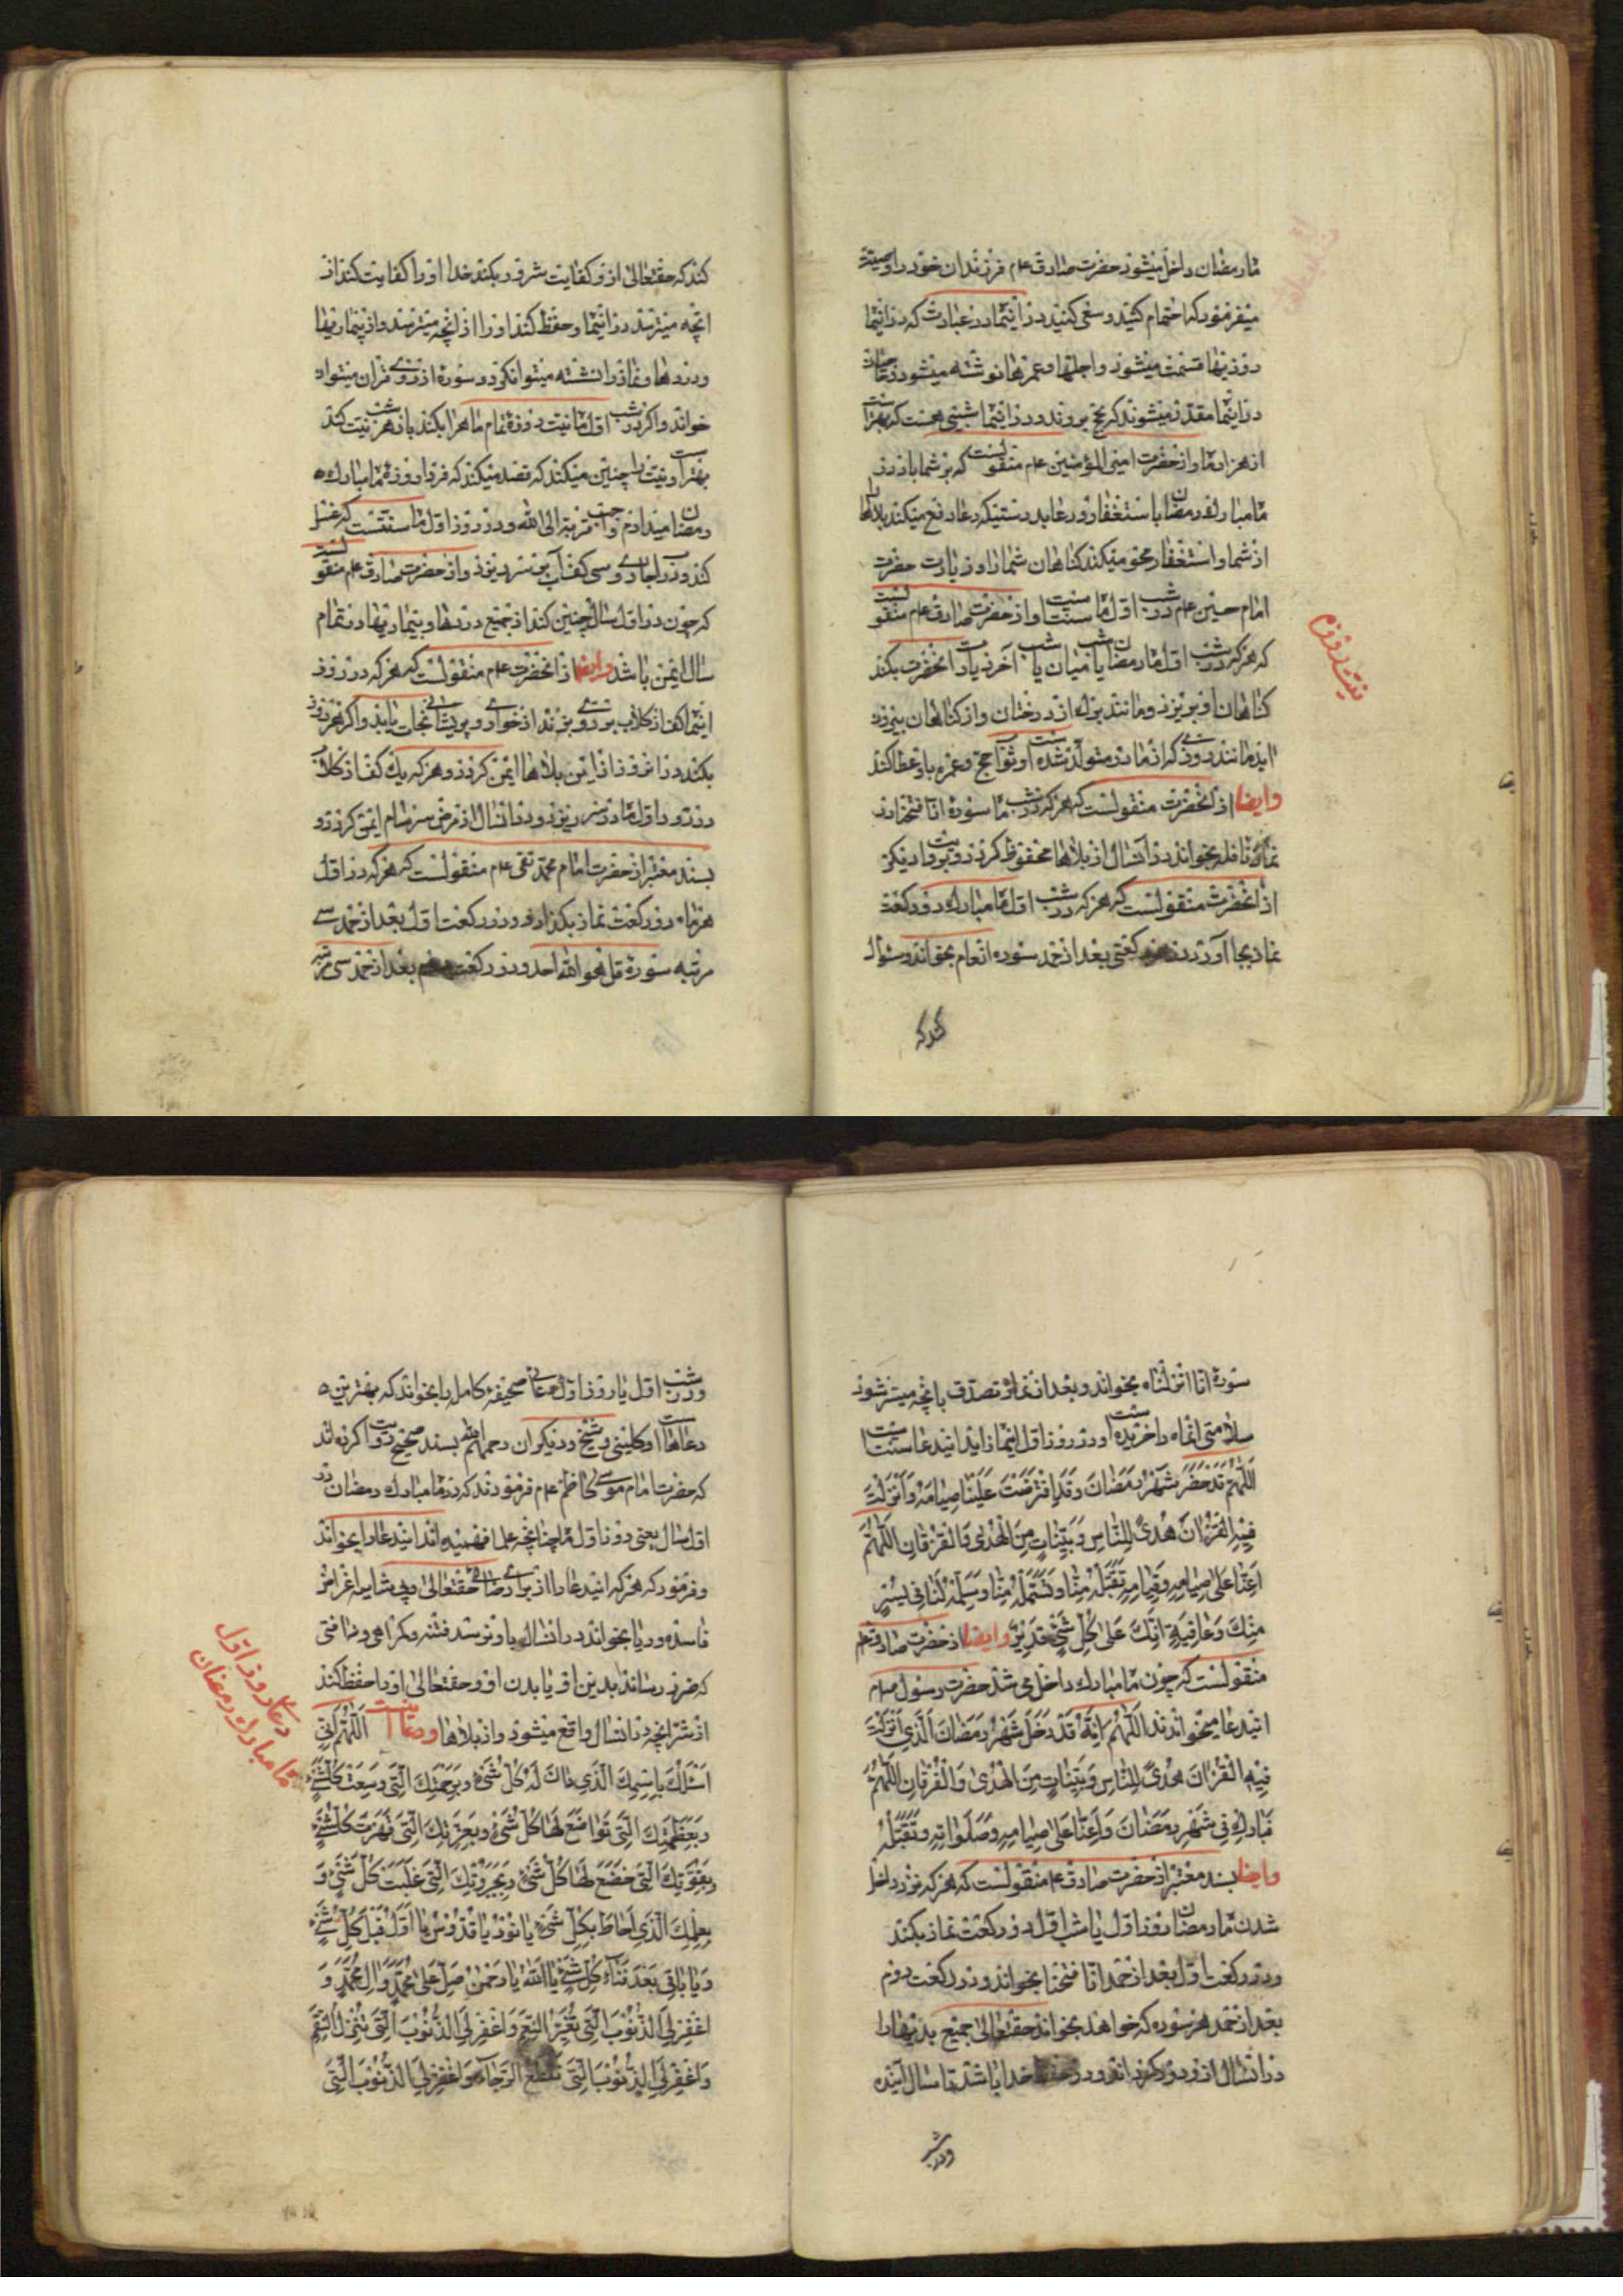 ماه رمضان داخل میشود حضرت صادق عم فرزندان خود را وصیت
میفرمود که اهتمام کنید و سعی کنید در اینماه در عبادت که در اینماه
روزیها قسمت میشود و اجلها و عمرها نوشته میشود و جماعت
در اینماه مقدر میشوند که بحج بروند و در اینماه شبی هست که بهتر است
از هزار ماه و از حضرت امیر المؤمنین عم منقولست که بر شما باد در
ماه مبارک رمضان باستغفار و دعا بدرستیکه دعا دفع میکند بلاها را
از شما و استغفار محو میکند کناهان شما را و زیارت حضرت
امام حسین عم در شب اول ماه سنت است و از حضرت صادق عم منقولست
که هر که در شب اول ماه رمضان یا شب میان یا شب آخر زیارت آنحضرت بکند
کناهان او بریزد و مانند برک از درختان و از کناهان بیرون
اید مانند روزی که از مادر متولد شده است و ثواب حج و عمره باو عطا کند
وایضا از آنحضرت منقولست که هر که در شب ماه سوره انا فتحنا در
نماز نافله بخواند در آنسال از بلاها محفوظ کردد و بروایت دیکر
از آنحضرت منقولست که هر که در شب اول ماه مبارک دو رکعت
نماز بجا آورد در هر رکعتی بعد از حمد سوره انعام بخواند و سئوال
کند که
نیت روزه
کند که حقتعالی از او کفایت شر او را بکند خدا او را کفایت کند از
انچه میترسد در اینماه و حفظ کند او را از انچه میترسد و از بیماریها
و دردها و نماز را نشسته میتوان کرد و سوره از روی قران میتواند
خواند و اکر در شب اول ماه نیت روزه تمام ماه را بکند باز هر شب نیت کند
بهتر است و نیت را چنین میکند که قصد میکند که فردا روزه ماه مبارک
رمضان میدارم واجب قربة الی الله و در روز اول ماه سنتست که غسل
کند در اب جاری و سی کف آب بر سر بریزد و از حضرت صادق عم منقولست
که چون در اول سال چنین کند از جمیع دردها و بیماریها در تمام
سال ایمن باشد وایضا از انحضرت عم منقولست که هر که در روز
اینماه کف از کلاب بر روی بزند از خواری و پریشانی نجات یابد و اکر هر روز
بکند در انروز از این بلاها ایمن کردد و هر که یک کف از کلاب
در روز اول ماه در سر ریزد در انسال از مرض سرسام ایمن کردد و
بسند معتبر از حضرت امام محمد تقی عم منقولست که هر که در اول
هر ماه دو رکعت نماز بکذارد و در رکعت اول بعد از حمد سی
مرتبه سوره قل هو الله احد و در رکعت بعد از حمد سی مرتبه
سوره انا انزلناه بخواند و بعد از نماز تصدق بانچه میسر شود
سلامتی انماه را خریده است و در روز اول اینماه زاید ایندعا سنت است
اَللّهُمَّ قَدْ حَضَرَ شَهْرُ رَمَضَانَ وَ قَدِ افْتَرَضْتَ عَلَيْنَا صِيَامَهُ وَ اَنْزَلْتَ
فِيْهِ الْقُرْانَ هُدًى لِلنَّاسِ وَ بَيِّنَاتٍ مِنَ الْهُدٰى وَ الْفُرْقَانِ اَللّهُمَّ
اَعِنَّا عَلٰى صِيَامِهِ وَ قِيَامِهِ تَقَبَّلْهُ مِنَّا وَ تَسَلَّمْهُ مِنَّا وَ سَلِّمْهُ لَنَا فِي يُسْرٍ
مِنْكَ وَ عَافِيَةٍ اِنَّكَ عَلٰى كُلِّ شَيْءٍ قَدِيْرٌ وایضا از حضرت صادق عم
منقولست که چون ماه مبارک داخل می شد حضرت رسول صلعم
ایندعا میخواندند اَللّهُمَّ اِنَّهُ قَدْ دَخَلَ شَهْرُ رَمَضَانَ الَّذِي اَنْزَلْتَ
فِيْهِ الْقُرْانَ هُدًى لِلنَّاسِ وَ بَيِّنَاتٍ مِنَ الْهُدٰى وَ الْفُرْقَانِ اَللّهُمَّ
فَبَارِكْ فِي شَهْرِ رَمَضَانَ وَ اَعِنَّا عَلٰى صِيَامِهِ وَ صَلَوَاتِهِ وَ تَقَبَّلْهُ
وایضا بسند معتبر از حضرت صادق عم منقولست که هر که نزد داخل
شدن ماه رمضان روز اول یا شب اول دو رکعت نماز بکند
و در رکعت اول بعد از حمد انا فتحنا بخواند و در رکعت دوم
بعد از حمد هر سوره که خواهد بخواند حقتعالی جمیع بدیها را
در انسال از او دور کرداند و در حفظ خدا باشد تا سال آینده
و در شب
و در شب اول یا روز اول دعای صحیفه کامله را بخواند که بهترین
دعاها است و کلینی و شیخ و دیکران رحمهم الله بسند صحیح روایت کرده اند
که حضرت امام موسی کاظم عم فرمودند که در ماه مبارک رمضان در
اول سال یعنی روز اول ماه چنانچه علما فهمیده اند ایندعا را بخواند
و فرمود که هر که ایندعا را از برای رضای حقتعالی و بی شایبه اغراض
فاسده و ریا بخواند در انسال باو نرسد فتنه و کمراهی و نه افتی
که ضرر رساند بدین او یا بدن او و حقتعالی او را حفظ کند
از شر انچه در انسال واقع میشود و از بلاها و دعا اینست اَللّهُمَّ اِنِّي
اَسْئَلُكَ بِاسْمِكَ الَّذِي دَانَ لَهُ كُلُّ شَيْءٍ وَ بِرَحْمَتِكَ الَّتِي وَسِعَتْ كُلَّ شَيْءٍ
وَ بِعَظَمَتِكَ الَّتِي تَوَاضَعَ لَهَا كُلُّ شَيْءٍ وَ بِعِزَّتِكَ الَّتِي قَهَرَتْ كُلَّ شَيْءٍ
وَ بِقُوَّتِكَ الَّتِي خَضَعَ لَهَا كُلُّ شَيْءٍ وَ بِجَبَرُوتِكَ الَّتِي غَلَبَتْ كُلَّ شَيْءٍ وَ
بِعِلْمِكَ الَّذِي اَحَاطَ بِكُلِّ شَيْءٍ يَا نُوْرُ يَا قُدُّوْسُ يَا اَوَّلُ قَبْلَ كُلِّ شَيْءٍ
وَ يَا بَاقِي بَعْدَ فَنَاءِ كُلِّ شَيْءٍ يَا اَللهُ يَا رَحْمٰنُ صَلِّ عَلٰى مُحَمَّدٍ وَ الِ مُحَمَّدٍ وَ
اغْفِرْ لِيَ الذُّنُوْبَ الَّتِي تُغَيِّرُ النِّعَمَ وَ اغْفِرْ لِيَ الذُّنُوْبَ الَّتِي تُنْزِلُ النِّقَمَ
وَ اغْفِرْ لِيَ الذُّنُوْبَ الَّتِي تَقْطَعُ الرَّجَاءَ وَ اغْفِرْ لِيَ الذُّنُوْبَ الَّتِي
دعاء روز اول
ماه مبارک رمضان